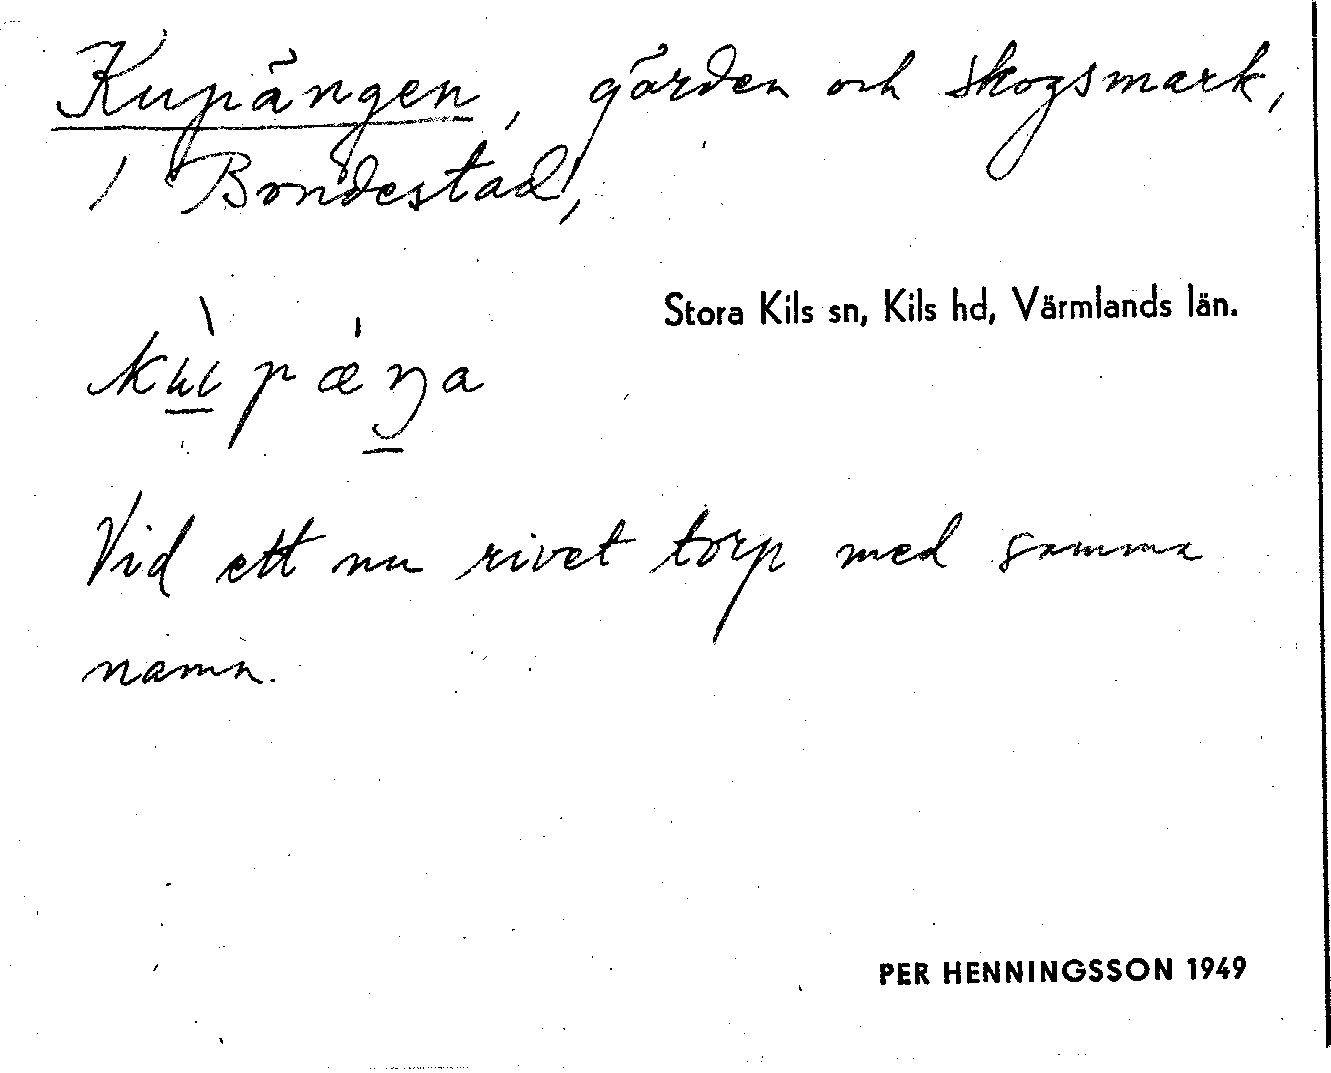 Kupängen, gärden och skogsmark,
1 Bondestad,
Stora Kils sn, Kils hd, Värmlands län.
Vid ett nu rivet torp med samma
namn.
PER HENNINGSSON 1949